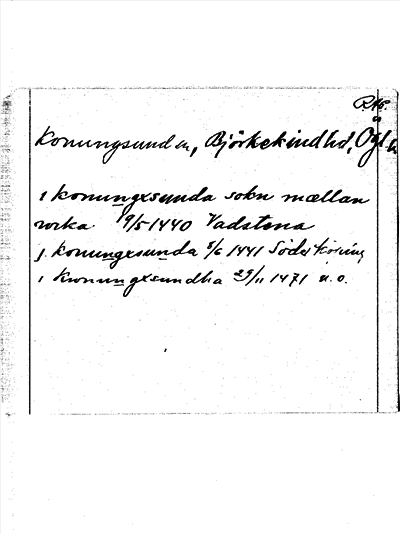 R.Ap.
Konungsund sn, Björkekinds hd, Ögl
i konungxsunda sokn mællan
wika 19/5 1440 Vadstena
j konungxsunda 5/6 1441 Söderköping
i Kwnungxsundha 29/11 1471 u.o.